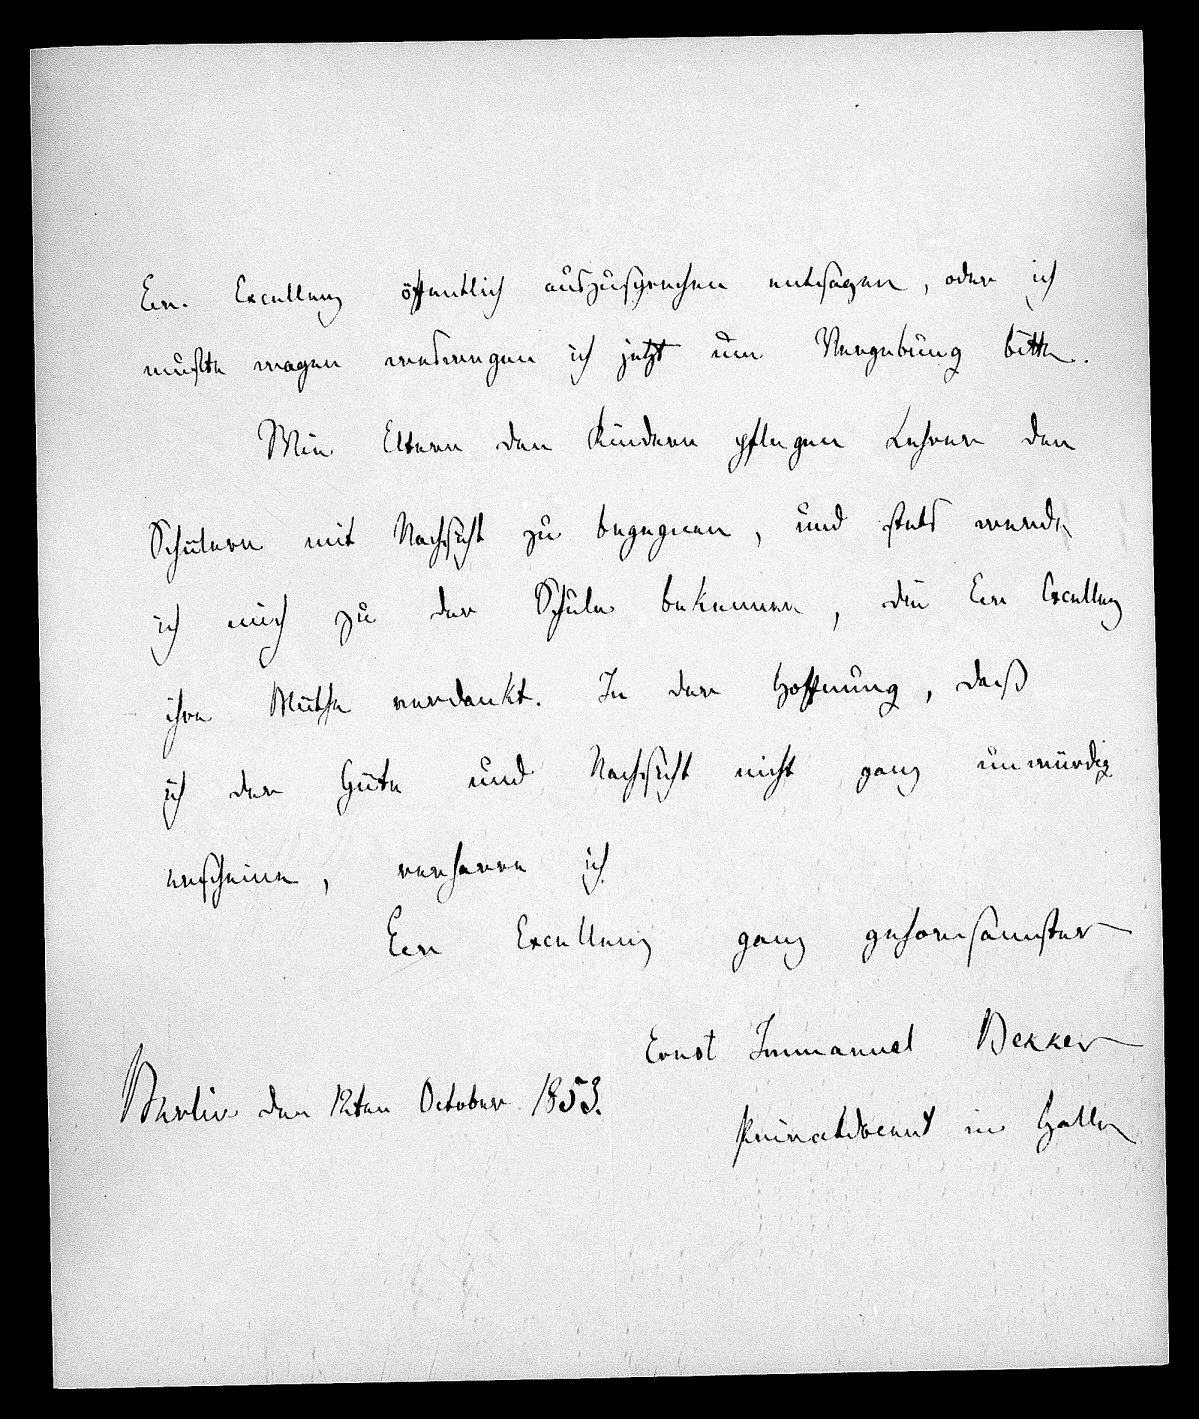 Ew. Excellenz öffentlich auszusprechen entsagen, oder ich
mußte wagen weswegen ich jetzt um Vergebung bitte.
Wie Eltern den Kindern pflegen Lehrer den
Schülern mit Nachsicht zu begegnen, und stets werde
ich mich zu der Schule bekennen, die Ew Excellenz
ihre Muthe verdankt. In der Hoffnung, daß
ich der Güte und Nachsicht nicht ganz unwürdig
erscheine, verharre ich
Ew Excellenz ganz gehorsamster
Ernst Immanuel Bekker
Berlin den 12ten October 1853.
Privatdocent in Halle